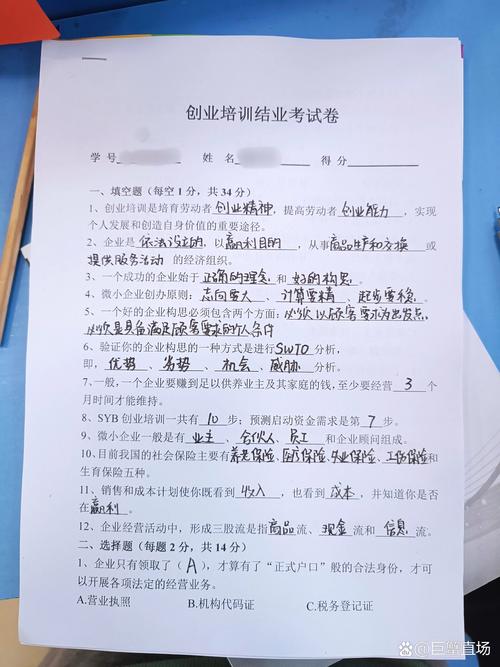 创业培训结业考试卷
学 号 姓 名 得 分
一、填空题（每空 1 分，共 34 分）
1、创业培训是培育劳动者 创业精神，提高劳动者 创业能力，实现
个人发展和创造自身价值的重要途径。
2、企业是 依法设立的，以 赢利目的，从事 商品生产和交换 或
提供服务活动 的经济组织。
3、一个成功的企业始于 正确的理念 和 好的构思。
4、微小企业创办原则：志向要大、计算要精、起步要稳。
5、一个好的企业构思必须包含两个方面：必须以顾客需求为出发点，
必须是具备满足顾客需求的人条件
6、验证你的企业构思的一种方式是进行 SWTO 分析，
即，优势、劣势、机会、威胁 分析。
7、一般，一个企业要赚到足以供养业主及其家庭的钱，至少要经营 3 个
月时间才能维持。
8、SYB 创业培训一共有 10 步；预测启动资金需求是第 7 步。
9、微小企业一般是有 业主、合伙人、员工 和企业顾问组成。
10、目前我国的社会保险主要有 养老保险、医疗保险、失业保险、工伤保险和
生育保险五种。
11、销售和成本计划使你既看到 收入，也看到 成本，并知道你是否
在 赢利。
12、企业经营活动中，形成三股流是指 商品 流、现金 流和 信息 流。
二、选择题（每题 2 分，共 14 分）
1、企业只有领取了（ A ），才算有了“正式户口”般的合法身份，才可
以开展各项法定的经营业务。
A.营业执照 B.机构代码证 C.税务登记证
@巨蟹直场